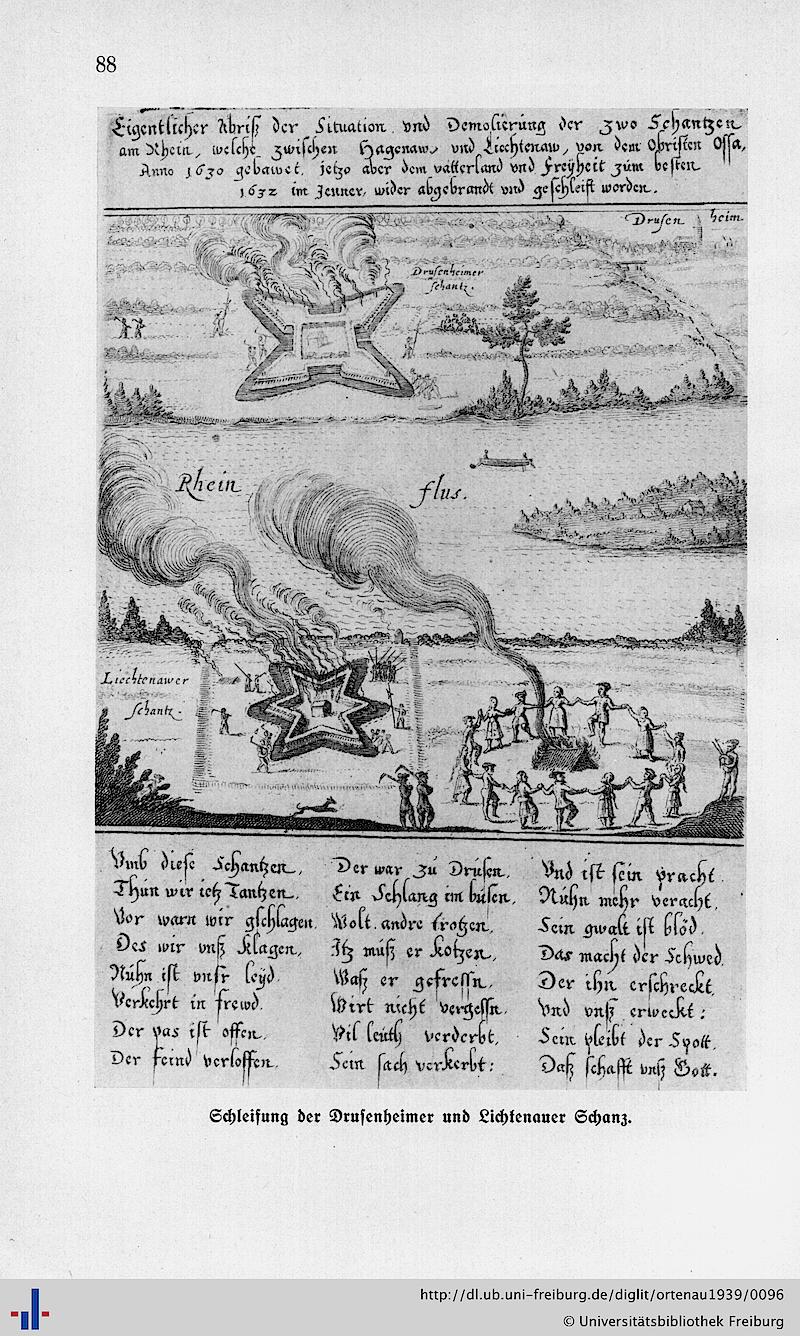 88
Eigentlicher Abriß der Situation vnd Demolierung der zwo Schantzen
am Rhein, welche zwischen Hagenaw vnd Liechtenaw, von dem Obristen Ossa,
Anno 1630 gebawet, jetzo aber dem vatterland vnd Freÿheit zúm besten
1632 im Jenner, wider abgebrandt vnd geschleift worden.
Drusen heim
Drusenheimer
schantz.
Rhein flus.
Liechtenawer
schantz.
Vmb diese Schantzen,
Thún wir ietz Tantzen,
Vor warn wir gschlagen,
Des wir vnß klagen,
Núhn ist vnsr leÿd
Verkehrt in frewd.
Der pas ist offen,
Der feind verloffen,
Der war zú Drúsen,
Ein Schlang im búsen,
Wolt andre trotzen,
Itz múß er kotzen,
Waß er gefressn,
Wirt nicht vergessn,
Vil leúth verderbt,
Sein sach verkerbt:
Vnd ist sein pracht
Núhn mehr veracht,
Sein gwalt ist blöd,
Das macht der Schwed,
Der ihn erschreckt,
Vnd vnß erweckt:
Sein pleibt der Spott,
Daß schafft vnß Gott.
Schleifung der Drusenheimer und Lichtenauer Schanz.
http://dl.ub.uni-freiburg.de/diglit/ortenau1939/0096
© Universitätsbibliothek Freiburg